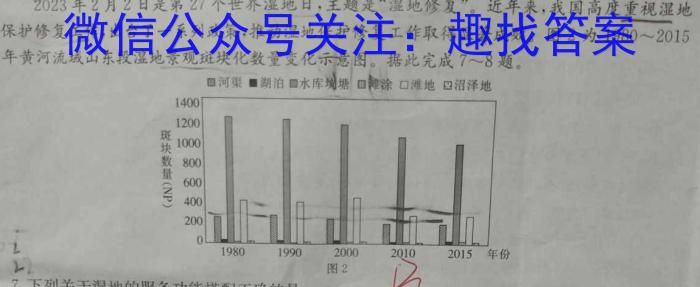 2023年2月2日是第27个世界湿地日,主题是“湿地修复”。近年来,我国高度重视湿地
保护修复
微信公众号关注:趣找答案
工作取得
~2015
年黄河流域山东段湿地景观斑块化数量变化示意图。据此完成7~8题。
河渠 湖泊 水库坑塘 滩涂 滩地 沼泽地
斑块数量(NP)
1400
1200
1000
800
600
400
200
0
1980 1990 2000 2010 2015 年份
图2
7.下列关于湿地的服务功能搭配正确的是